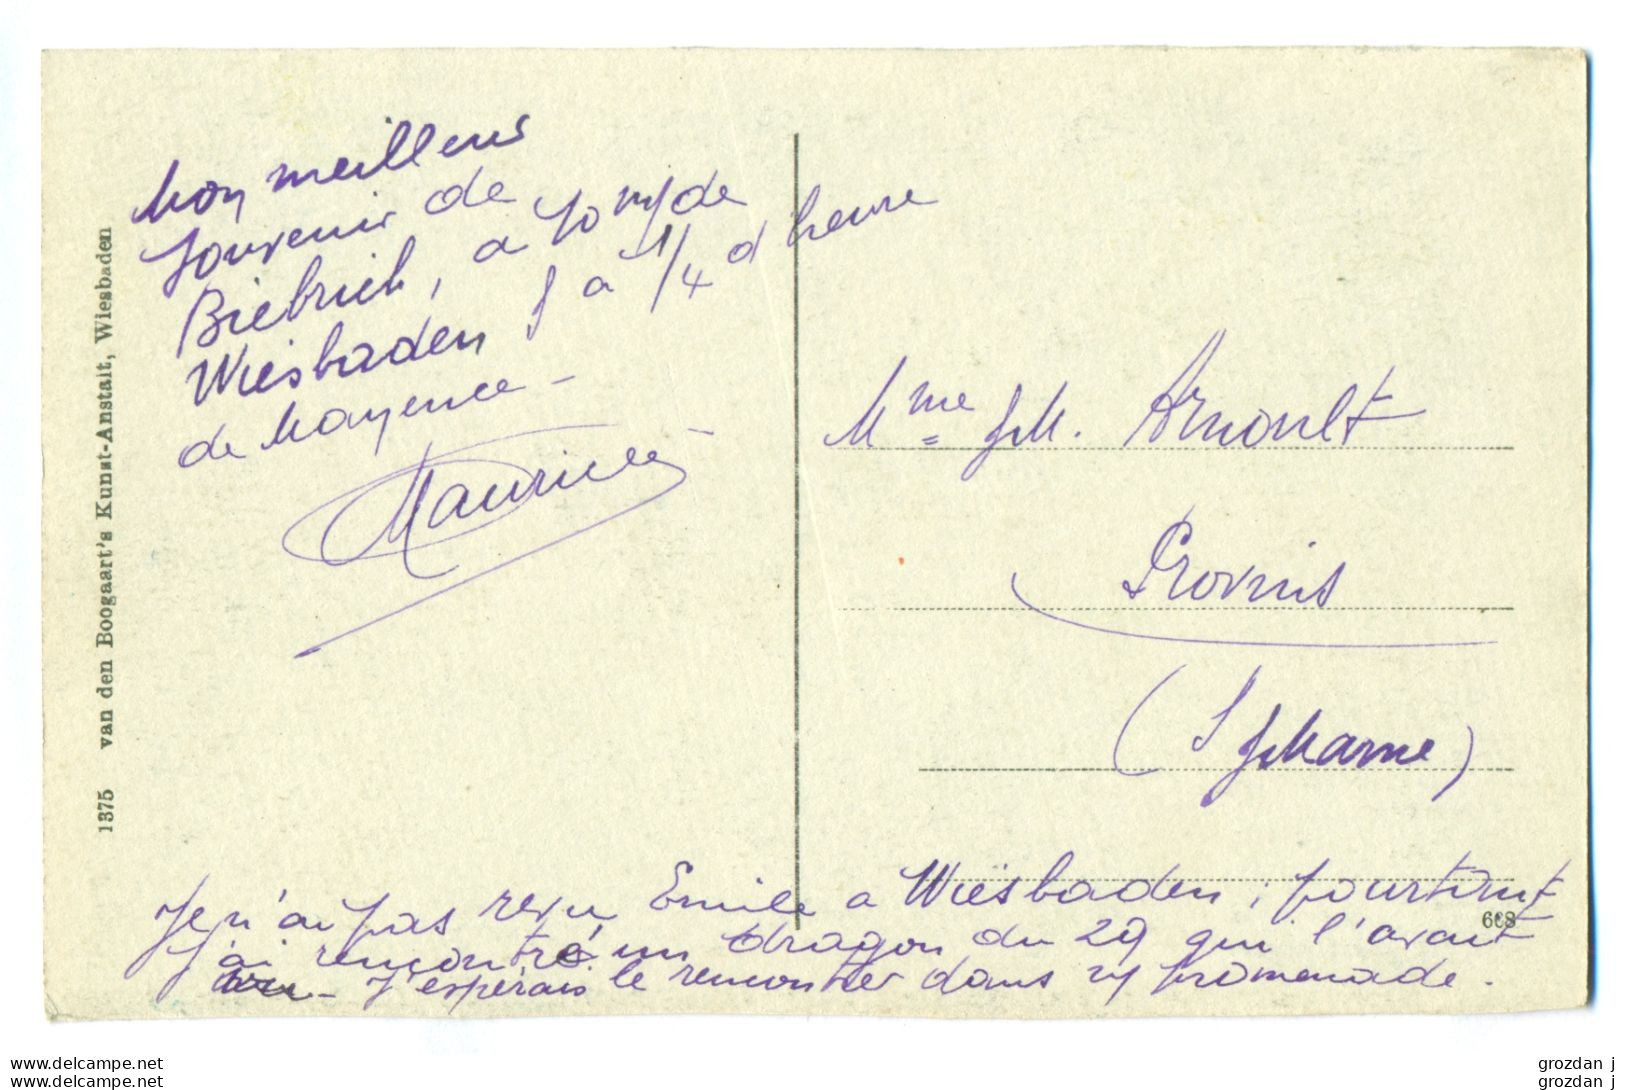 Mon meilleur
souvenir de
Biebrich, a 10 m/ de
Wiesbaden & a 1/4 d heure
de Mayence -
Maurice
Mme = M. Arnoult
Provins
(S & Marne)
Je n'ai pas revu Emile a Wiesbaden, pourtant
j'ai rencontré un dragon du 29 qui l'avait
vu - J'esperais le rencontrer dans m/ promenade.
1375 van den Boogaart's Kunst-Anstalt, Wiesbaden
668
delcampe.net
delcampe.net
grozdan j
grozdan j